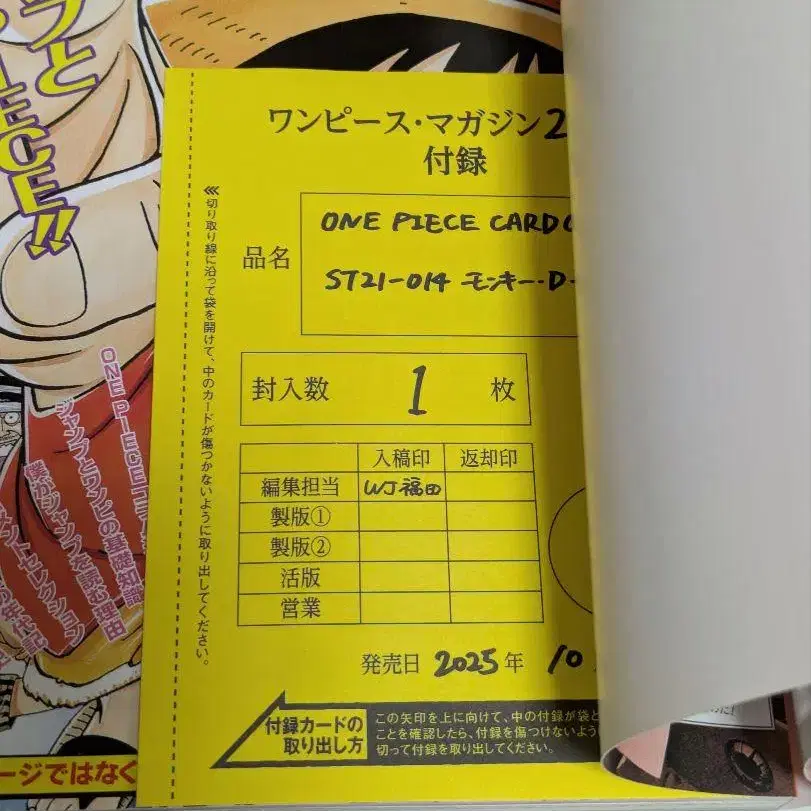 フと
PIECE!!
ワンピース・マガジン2
付録
≪切り取り線に沿って袋を開けて、中のカードが傷つかないように取り出してください。
品名
ONE PIECE CARD
ST21-014 モンキー・D・
封入数 1 枚
入稿印 返却印
編集担当 WJ福田
製版①
製版②
活版
営業
発売日 2025年 10
付録カードの
取り出し方
この矢印を上に向けて、中の付録が袋と
ことを確認したら、付録を傷つけないよう
切って付録を取り出してください。
ONE PIECE
ジャンプとワンピの基礎知識
僕がジャンプを読む理由
セレクション
年代記
ージではなく